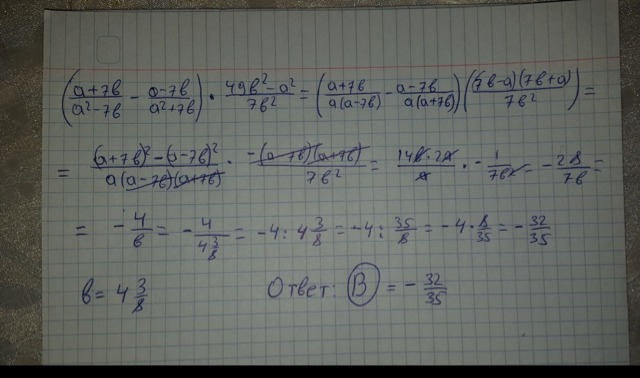 (a+7b/a²-7b - a-7b/a²+7b) · 49b²-a²/7b² = (a+7b/a(a-7b) - a-7b/a(a+7b)) ((7b-a)(7b+a)/7b²) =
= (a+7b)²-(a-7b)²/a(a-7b)(a+7b) · -(a-7b)(a+7b)/7b² = 14b·2a/a · -1/7b² = -28/7b =
= -4/b = -4/4 3/8 = -4 : 4 3/8 = -4 : 35/8 = -4 · 8/35 = -32/35
b = 4 3/8 Ответ: B = -32/35